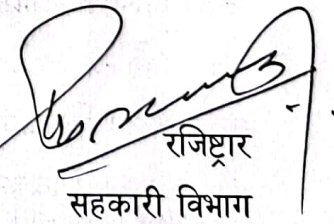 रजिष्ट्रार
सहकारी विभाग